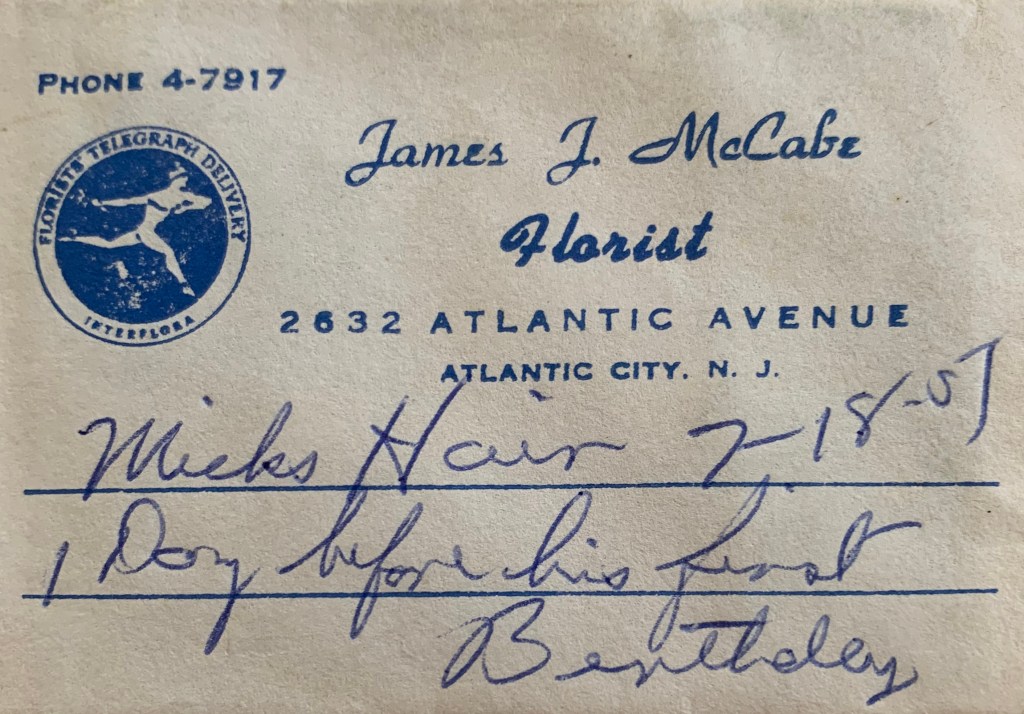 PHONE 4-7917
FLORISTS' TELEGRAPH DELIVERY
INTERFLORA
James J. McCabe
Florist
2632 ATLANTIC AVENUE
ATLANTIC CITY. N. J.
Micks Hair 7-18-57
1 Day before his first
Birthday